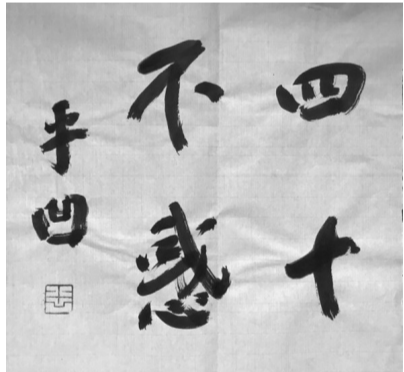 四十
不惑
平凹